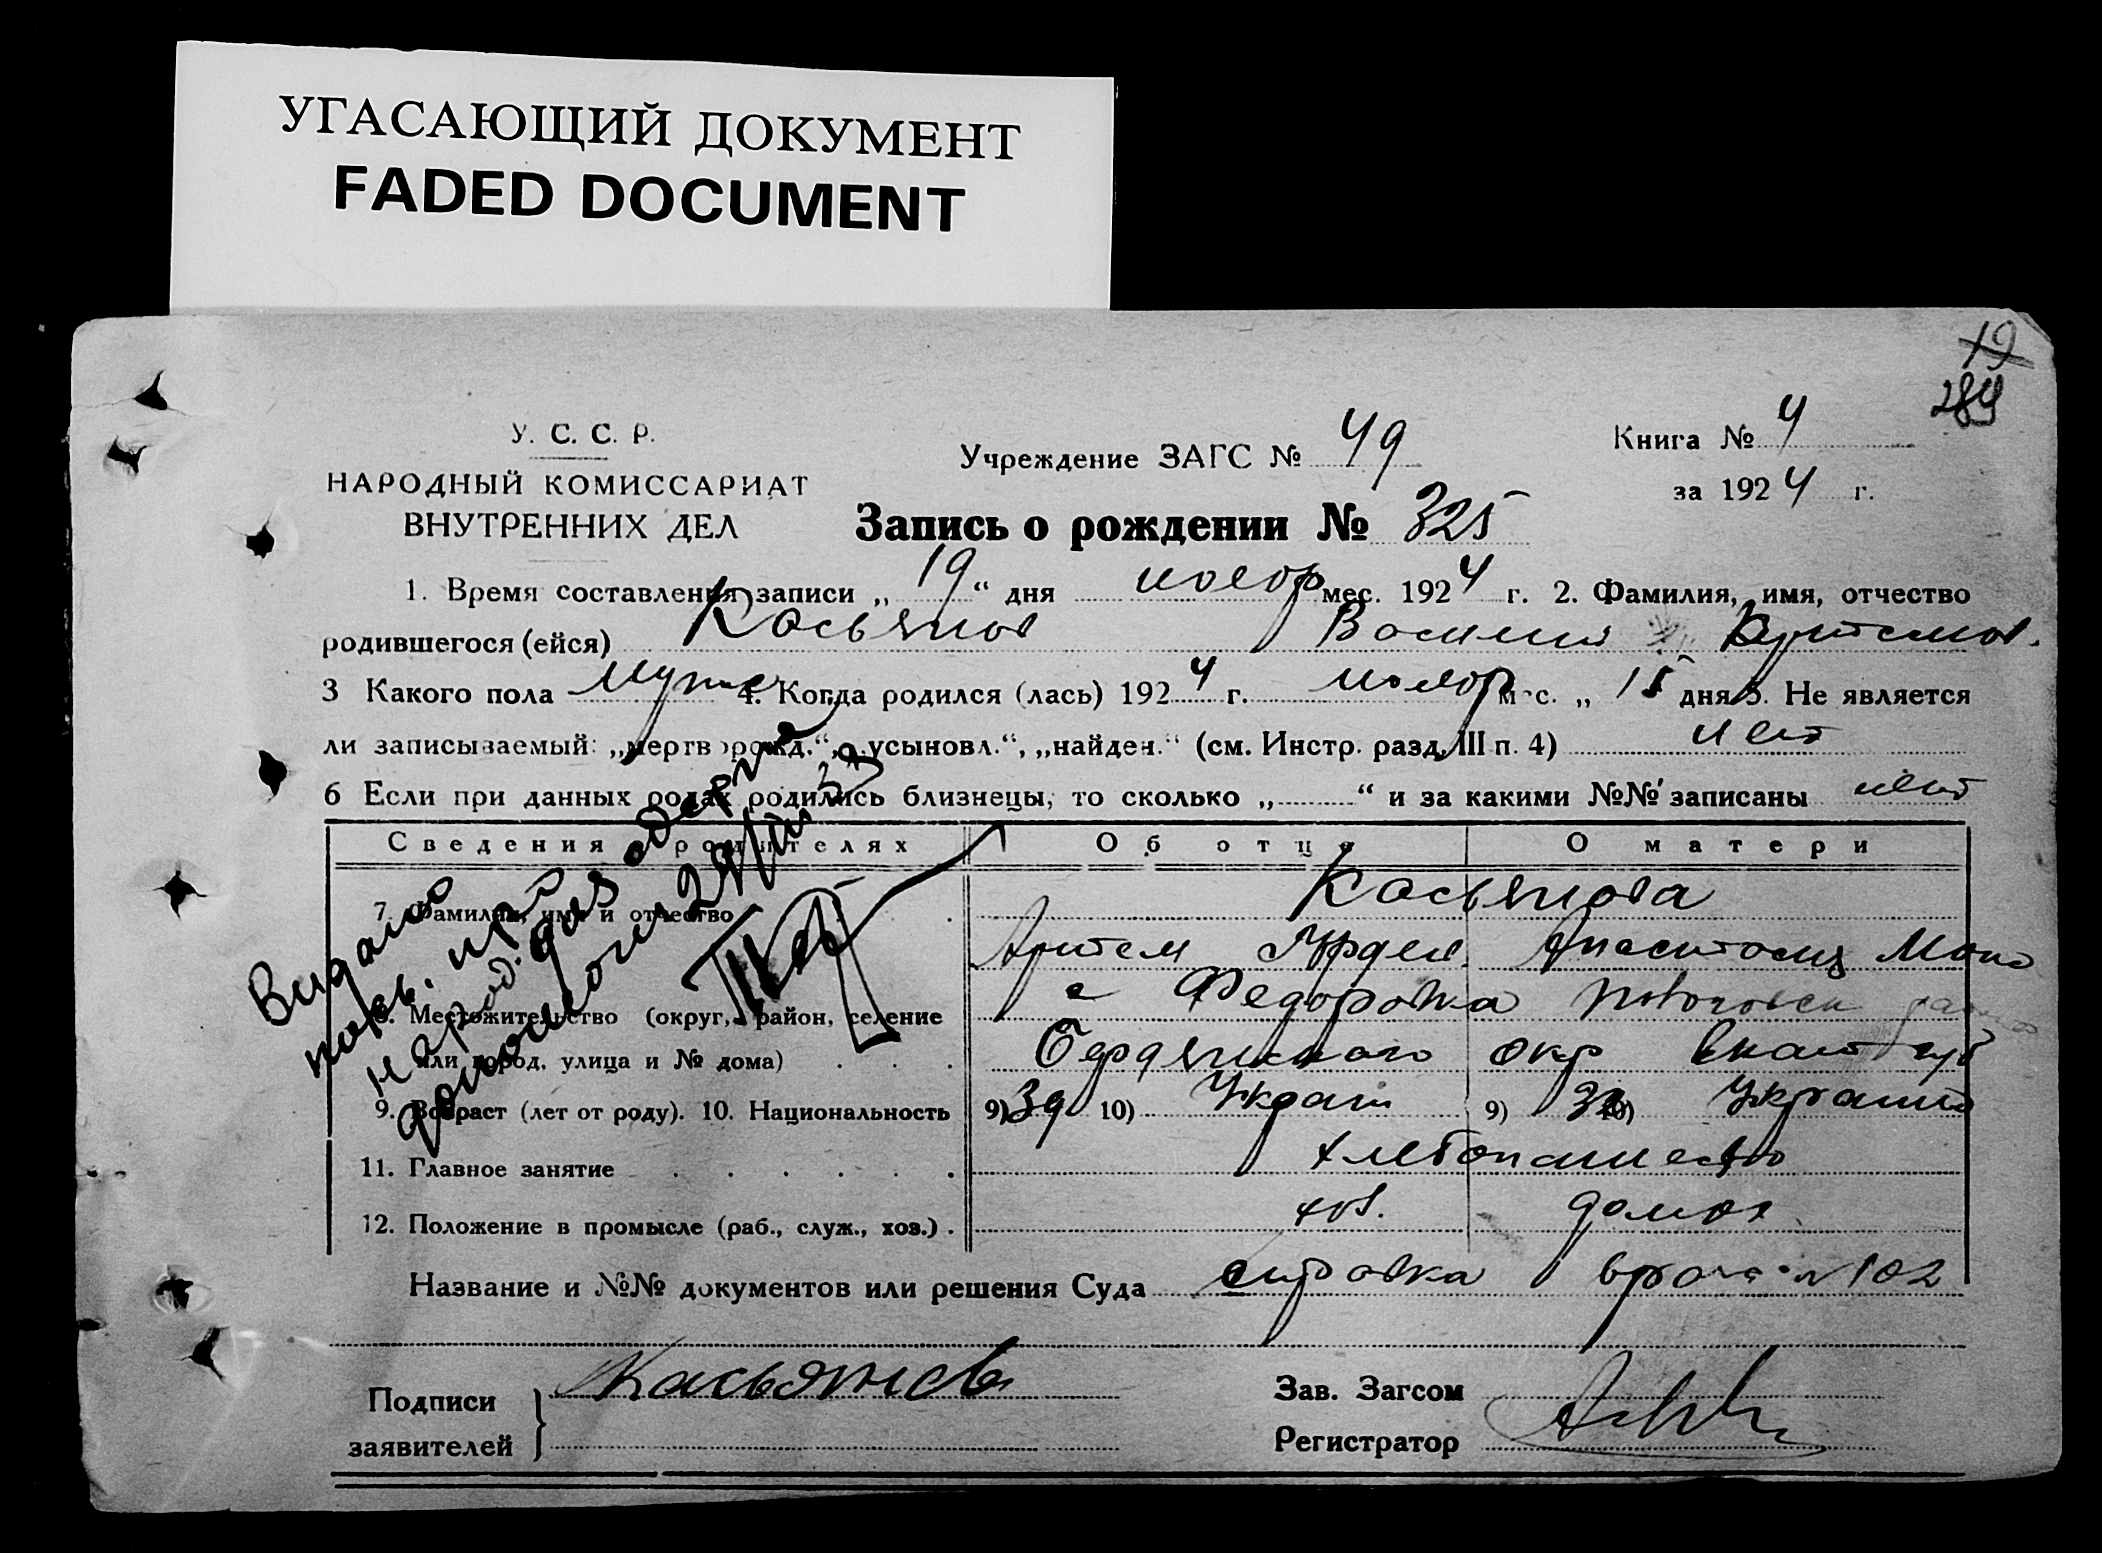 УГАСАЮЩИЙ ДОКУМЕНТ
FADED DOCUMENT
19
284
У. С. С. Р.
НАРОДНЫЙ КОМИССАРИАТ
ВНУТРЕННИХ ДЕЛ
Учреждение ЗАГС № 49
Книга № 4
за 1924 г.
Запись о рождении № 325
1. Время составления записи „ 19 “ дня ноябр мес. 1924 г. 2. Фамилия, имя, отчество
родившегося (ейся) Касьянов Василий Артемов.
3 Какого пола муже 4. Когда родился (лась) 1924 г. ноябр мес. „ 15 дня 5. Не является
ли записываемый: „мертворожд.“, „усыновл.“, „найден.“ (см. Инстр. разд. III п. 4) нет
6 Если при данных родах родились близнецы, то сколько „ “ и за какими №№ записаны нет
Сведения о родителях Об отце О матери
7. Фамилия, имя и отчество Касьянова
Артем Анастасия
8. Местожительство (округ, район, селение с Федоровка
или город, улица и № дома) Бердянского окр Екат губ
9. Возраст (лет от роду). 10. Национальность 9) 39 10) Украин 9) 10) Украинс
11. Главное занятие хлебопашество
12. Положение в промысле (раб., служ., хоз.) хоз. домох
Название и №№ документов или решения Суда справка врача № 102
Подписи
заявителей Касьянов
Зав. Загсом
Регистратор
Видано
про
народ. для